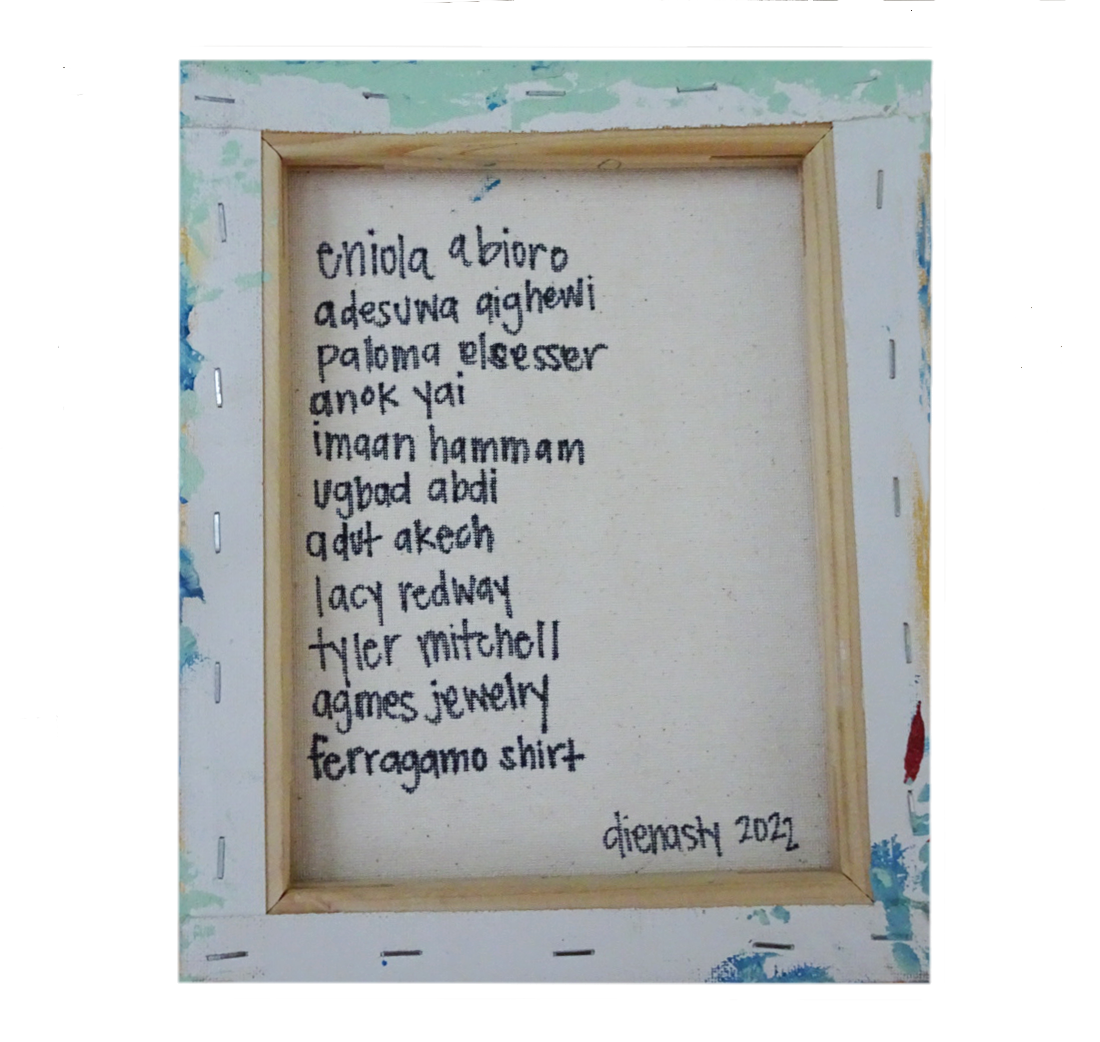 eniola abioro
adesuwa aighewi
paloma elsesser
anok yai
imaan hammam
ugbad abdi
adut akech
lacy redway
tyler mitchell
agmes jewelry
ferragamo shirt
dienasty 2022